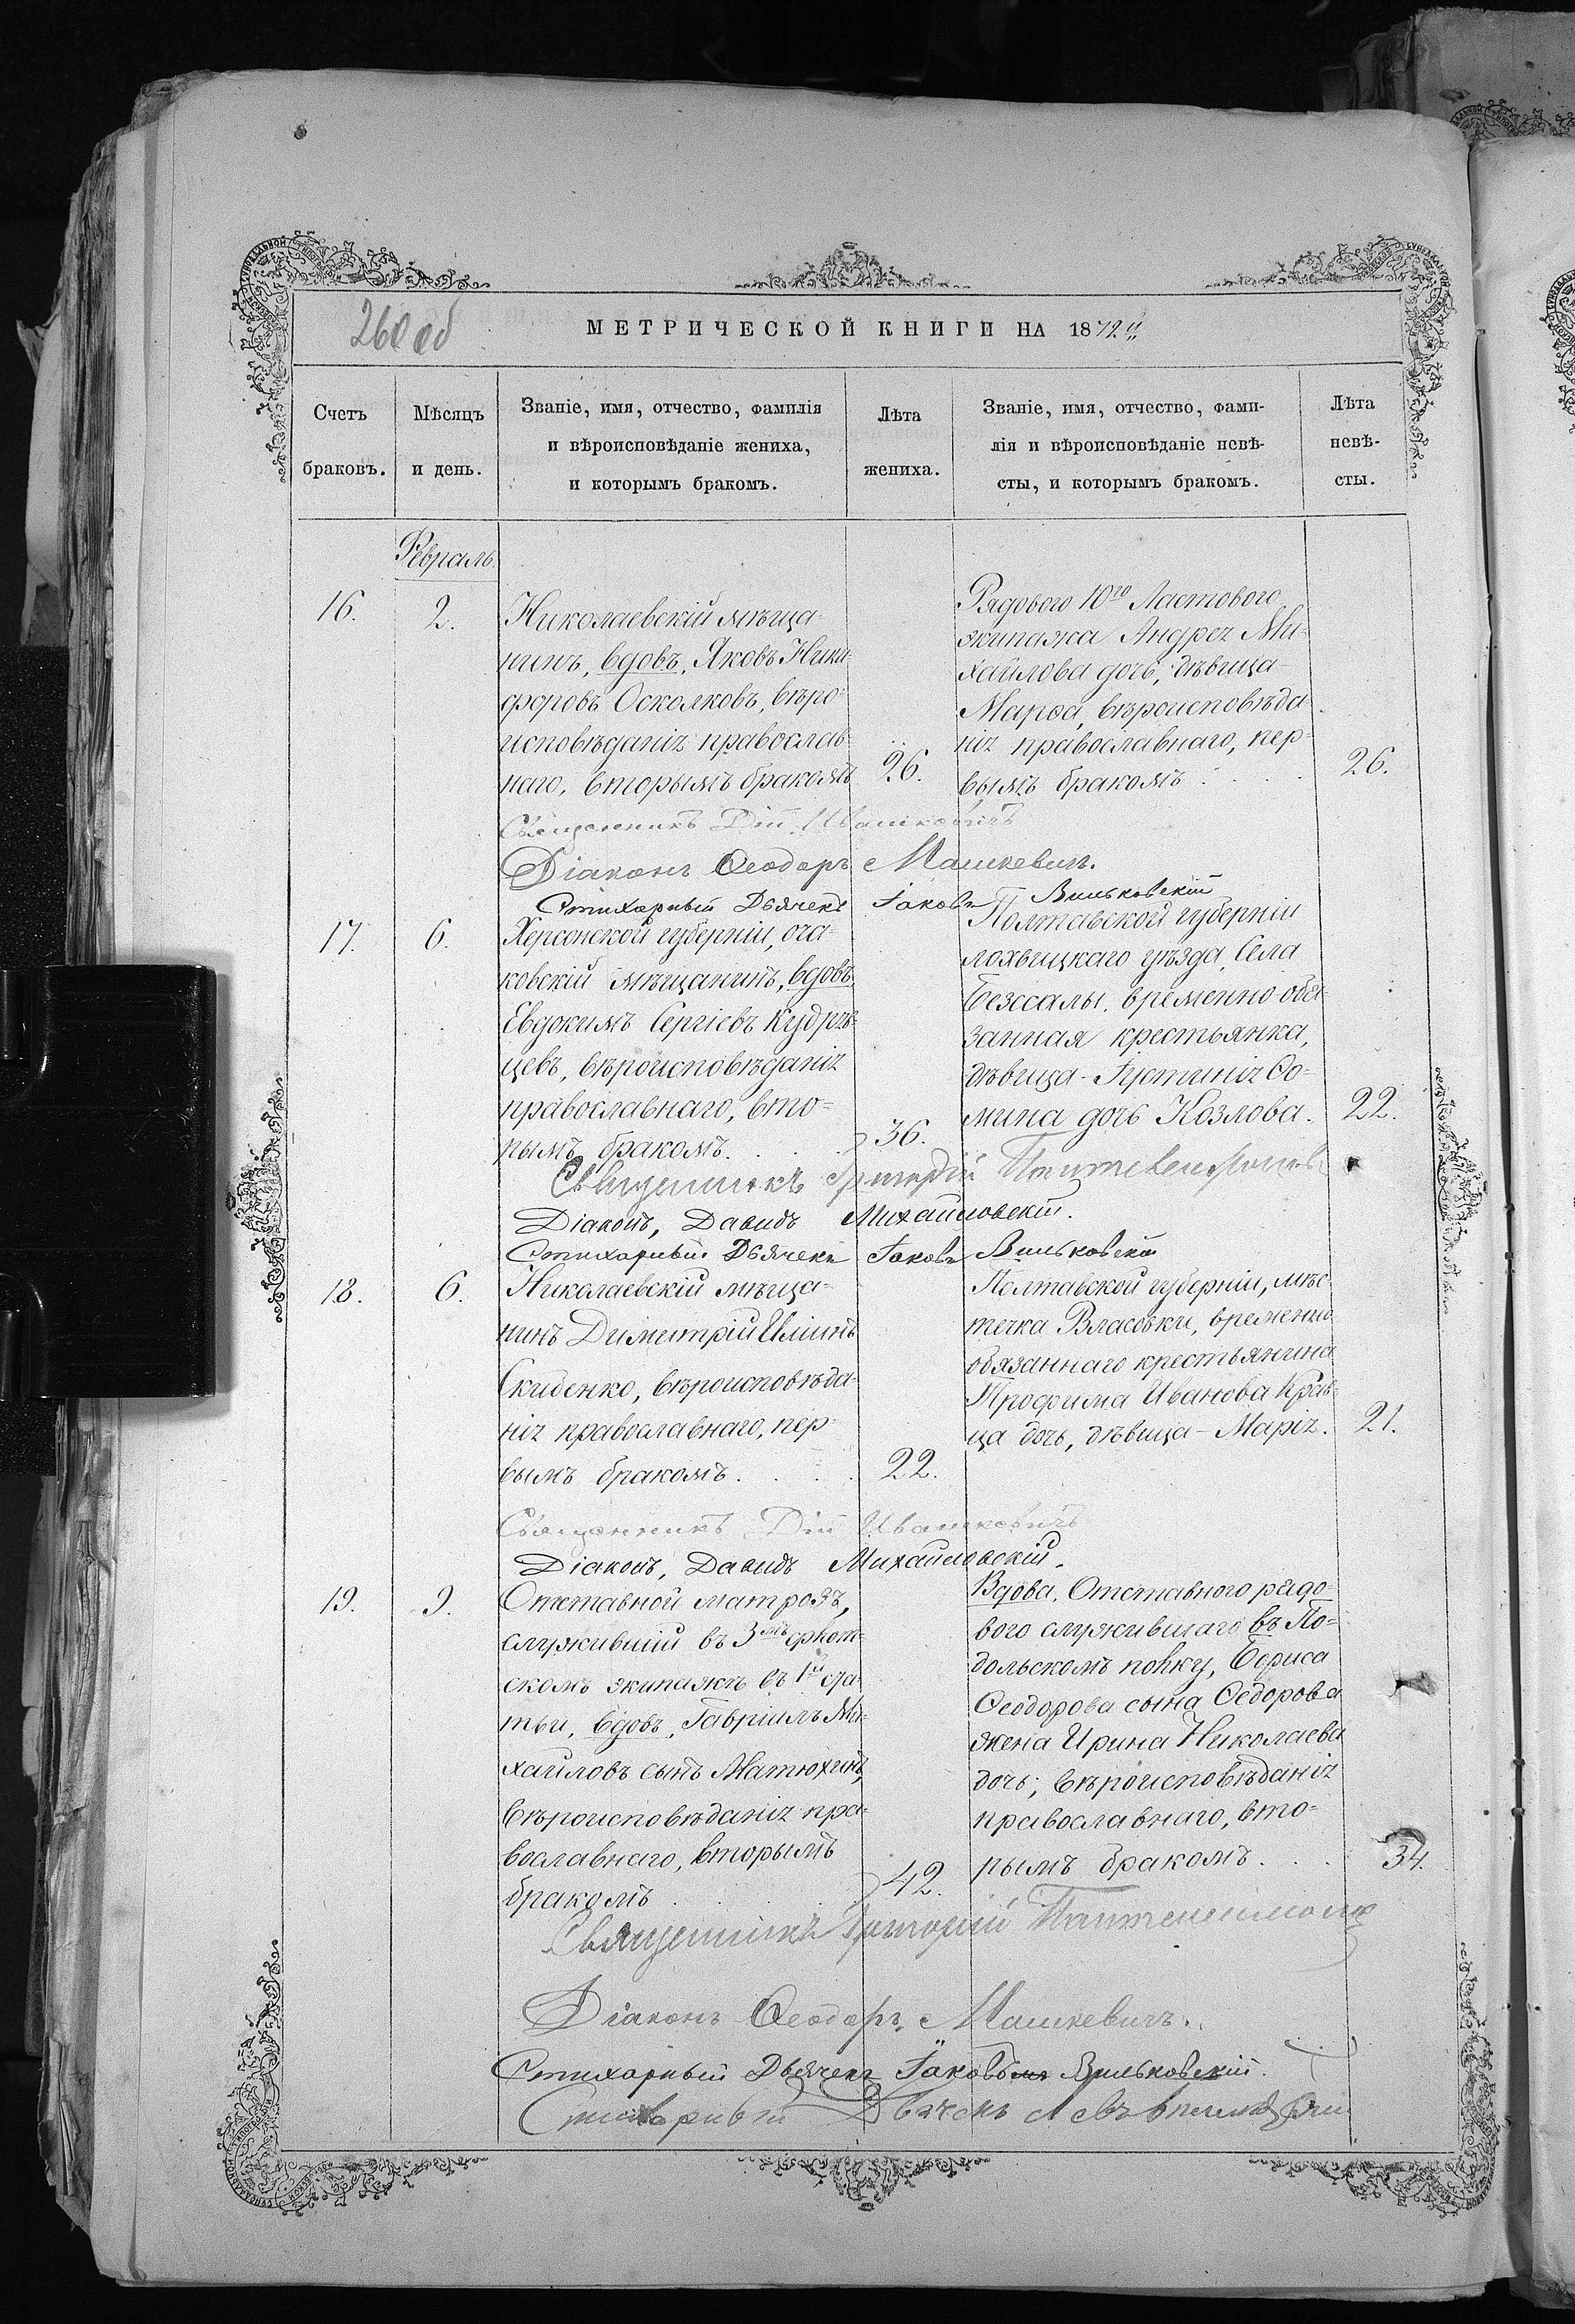 260 об
МЕТРИЧЕСКОЙ КНИГИ НА 1872 й
Счетъ
браковъ.
Мѣсяцъ
и день.
Званіе, имя, отчество, фамилія
и вѣроисповѣданіе жениха,
и которымъ бракомъ.
Лѣта
жениха.
Званіе, имя, отчество, фами-
лія и вѣроисповѣданіе невѣ-
сты, и которымъ бракомъ.
Лѣта
невѣ-
сты.
Февраль
16.
2.
Николаевскій мѣща-
нинъ, вдовъ, Яковъ Ники-
форовъ Осколковъ, вѣро-
исповѣданія православ-
наго, вторымъ бракомъ
26.
Рядового 10го Ластового
экипажа Андрея Ми-
хайлова дочь, дѣвица
Марѳа, вѣроисповѣда-
нія православнаго, пер-
вымъ бракомъ . . .
26.
Священникъ Дій Ивашкевичъ
Діаконъ Ѳеодоръ Машкевичъ.
Стихарный Дьячекъ Іаковъ Вильковскій
17.
6.
Херсонской губерніи, оча-
ковскій мѣщанинъ, вдовъ,
Евдокимъ Сергіевъ Кудря-
цевъ, вѣроисповѣданія
православнаго, вто-
рымъ бракомъ. . . .
36.
Полтавской губерніи
лохвицкаго уѣзда, Села
Безсалы, временно-обя-
занная крестьянка,
дѣвица - Іустинія Ѳо-
мина дочь Козлова.
22.
Священникъ Григорій
Діаконъ, Давидъ Михайловскій.
Стихарный Дьячекъ Іаковъ Вильковскій
18.
6.
Николаевскій мѣща-
нинъ Димитрій Ильинъ
Скиденко, вѣроисповѣда-
нія православнаго, пер-
вымъ бракомъ. . . .
22.
Полтавской губерніи, мѣс-
течка Власовки, временно
обязаннаго крестьянина
Трофима Иванова Крав-
ца дочь, дѣвица - Марія.
21.
Священникъ Дій Ивашкевичъ
Діаконъ, Давидъ Михайловскій.
19.
9.
Отставной матрозъ,
служившій въ 3мъ флот-
скомъ экипажѣ въ 1й ста-
тьи, вдовъ, Гавріилъ Ми-
хайловъ сынъ Матюхинъ,
вѣроисповѣданія пра-
вославнаго, вторымъ
бракомъ . . . .
42.
Вдова. Отставного рядо-
вого служившаго въ По-
дольскомъ полку, Бориса
Ѳеодорова сына Ѳедорова
жена Ирина Николаева
дочь, вѣроисповѣданія
православнаго, вто-
рымъ бракомъ. . .
34.
Священникъ Григорій
Діаконъ Ѳеодоръ Машкевичъ.
Стихарный Дьячекъ Іаковъ Вильковскій.
Стихарный Дьячекъ